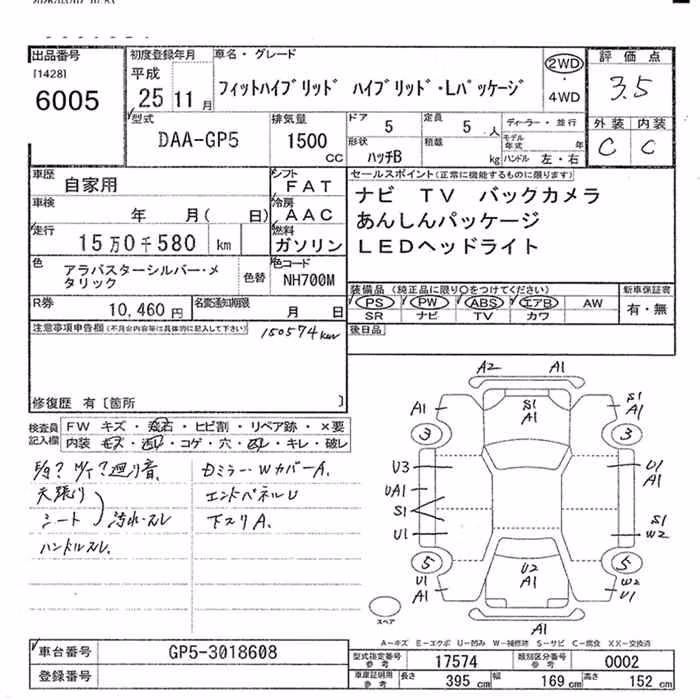 出品番号 初度登録年月 車名・グレード 2WD 評価点
[1428] 平成
6005 25 11月 フィットハイブリッド ハイブリッド・Lパッケージ ・ 4WD 3.5
型式 排気量 ドア 5 定員 5人 ディーラー・並行 外装 内装
DAA-GP5 1500 CC 形状 ハッチB 積載 kg モデル年式 年 C C
ハンドル 左・右
車歴 自家用 シフト FAT セールスポイント(正常に機能するものに限ります)
車検 年 月( 日) 冷房 AAC ナビ TV バックカメラ
走行 15万0千580 km 燃料 ガソリン あんしんパッケージ
LEDヘッドライト
色 アラバスターシルバー・メタリック 色替 色コード NH700M
装備品(純正品に限り○をつけてください) 新車保証書
PS PW ABS エアB AW 有・無
SR ナビ TV カワ
R券 10,460円 名変通知期限 月 日
後日品
注意事項申告欄(不具合内容等は具体的に記入して下さい) 150574km
修復歴 有〔箇所 〕
検査員記入欄 FW キズ・飛石・ヒビ割・リペア跡・×要
内装 キズ・・コゲ・穴・・キレ・破レ
廻り音 DミラーWカバーA.
天張り エンドパネルU
シート 汚れ・スレ 下スリA.
ハンドルスレ.
A2 A1
A1 S1 A1 S1 A1
3 3
U3 U1 A1
UA1
S1 S1
U1 W2
5 5
U1 A1 U2 A1 W2 U1
スペア
A-キズ E-エクボ U-凹み W-補修跡 S-サビ C-腐食 XX-交換済
車台番号 GP5-3018608 型式指定番号 参考 17574 類別区分番号 参考 0002
登録番号 車庫証明用 参考 長さ 395 cm 幅 169 cm 高さ 152 cm